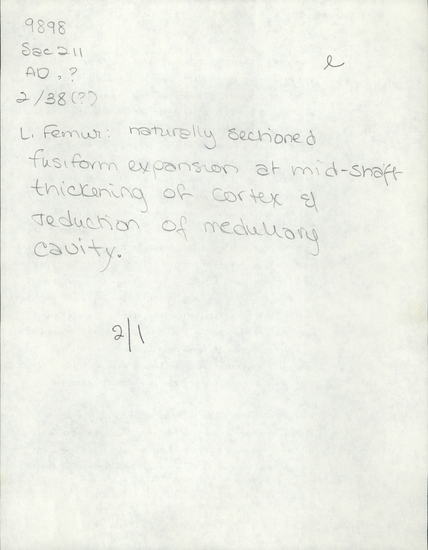 9898
Sac 211
AD, ?
2/38(?)
e
L. Femur: naturally sectioned
fusiform expansion at mid-shaft
thickening of cortex &
reduction of medullary
cavity.
2/1